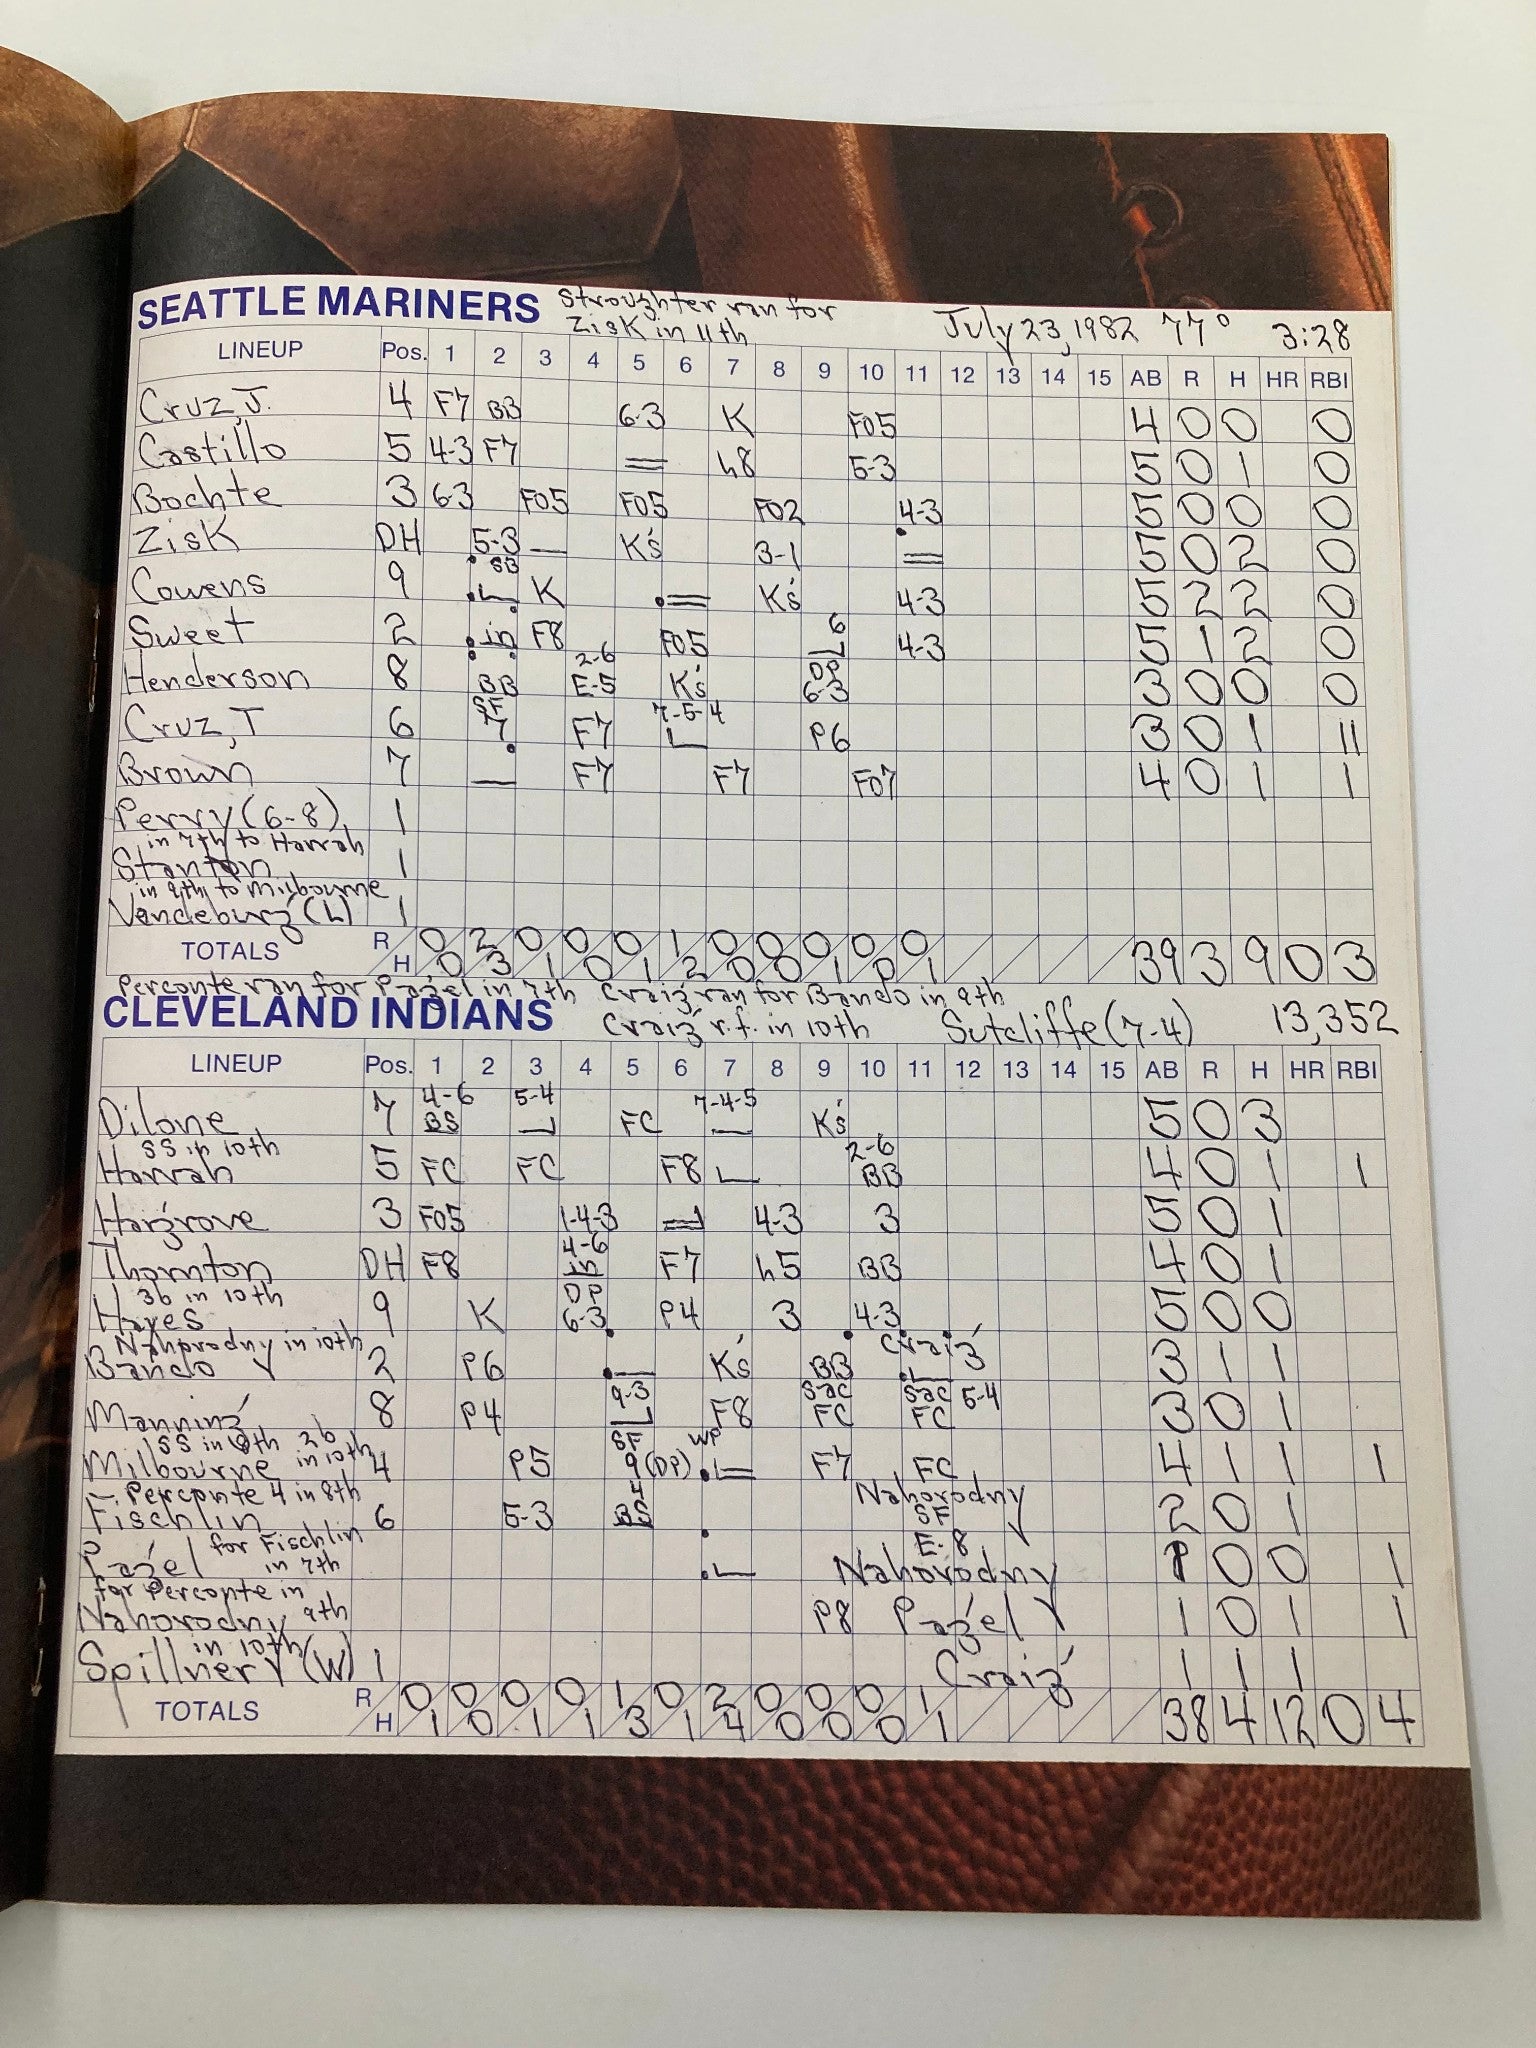 SEATTLE MARINERS Stroughter ran for
Zisk in 11th July 23, 1982 77° 3:28
LINEUP Pos. 1 2 3 4 5 6 7 8 9 10 11 12 13 14 15 AB R H HR RBI
Cruz, J. 4 F7 BB 6-3 K FO5 4 0 0 0
Castillo 5 4-3 F7 h8 5-3 5 0 1 0
Bochte 3 6-3 FO5 FO5 FO2 4-3 5 0 0 0
Zisk DH 5-3 Ks 3-1 5 0 2 0
SB
Cowens 9 K Ks 4-3 5 2 2 0
6
Sweet 2 in F8 FO5 4-3 5 1 2 0
2-6 DP
Henderson 8 BB E-5 Ks 6-3 3 0 0 0
SF 7-5-4
Cruz, T 6 7 F7 P6 3 0 1 11
Brown 7 F7 F7 FO7 4 0 1 1
Perry (6-8) 1
in 7th to Harrah
Stanton 1
in 9th to Milbourne
Vandeburg (L) 1
TOTALS R/H 0/0 2/3 0/1 0/0 0/1 1/2 0/0 0/0 0/1 0/0 0/1 39 3 9 0 3
Perconte ran for Pagel in 7th Craig ran for Bando in 9th
CLEVELAND INDIANS Craig r.f. in 10th Sutcliffe (7-4) 13,352
LINEUP Pos. 1 2 3 4 5 6 7 8 9 10 11 12 13 14 15 AB R H HR RBI
4-6 5-4 7-4-5
Dilone 7 BS FC Ks 5 0 3
SS in 10th 2-6
Harrah 5 FC FC F8 BB 4 0 1 1
Hargrove 3 FO5 1-4-3 4-3 3 5 0 1
4-6
Thornton DH F8 in F7 h5 BB 4 0 1
3b in 10th DP
Hayes 9 K 6-3 P4 3 4-3 5 0 0
Nahorodny in 10th Craig
Bando 2 P6 Ks BB 3 3 1 1
9-3 Sac Sac 5-4
Manning 8 P4 F8 FC FC 3 0 1
SS in 8th 2b in 10th SF WP
Milbourne 4 P5 9 (DP) F7 FC 4 1 1 1
Perconte 4 in 8th 4 Nahorodny
Fischlin 6 5-3 BS SF 2 0 1
for Fischlin E-8
Pagel in 7th Nahorodny 1 0 0 1
for Perconte in
Nahorodny 9th P8 Pagel 1 0 1 1
in 10th
Spillner (W) 1 Craig 1 1 1
TOTALS R/H 0/1 0/0 0/1 0/1 1/3 0/1 2/4 0/0 0/0 0/0 1/1 38 4 12 0 4